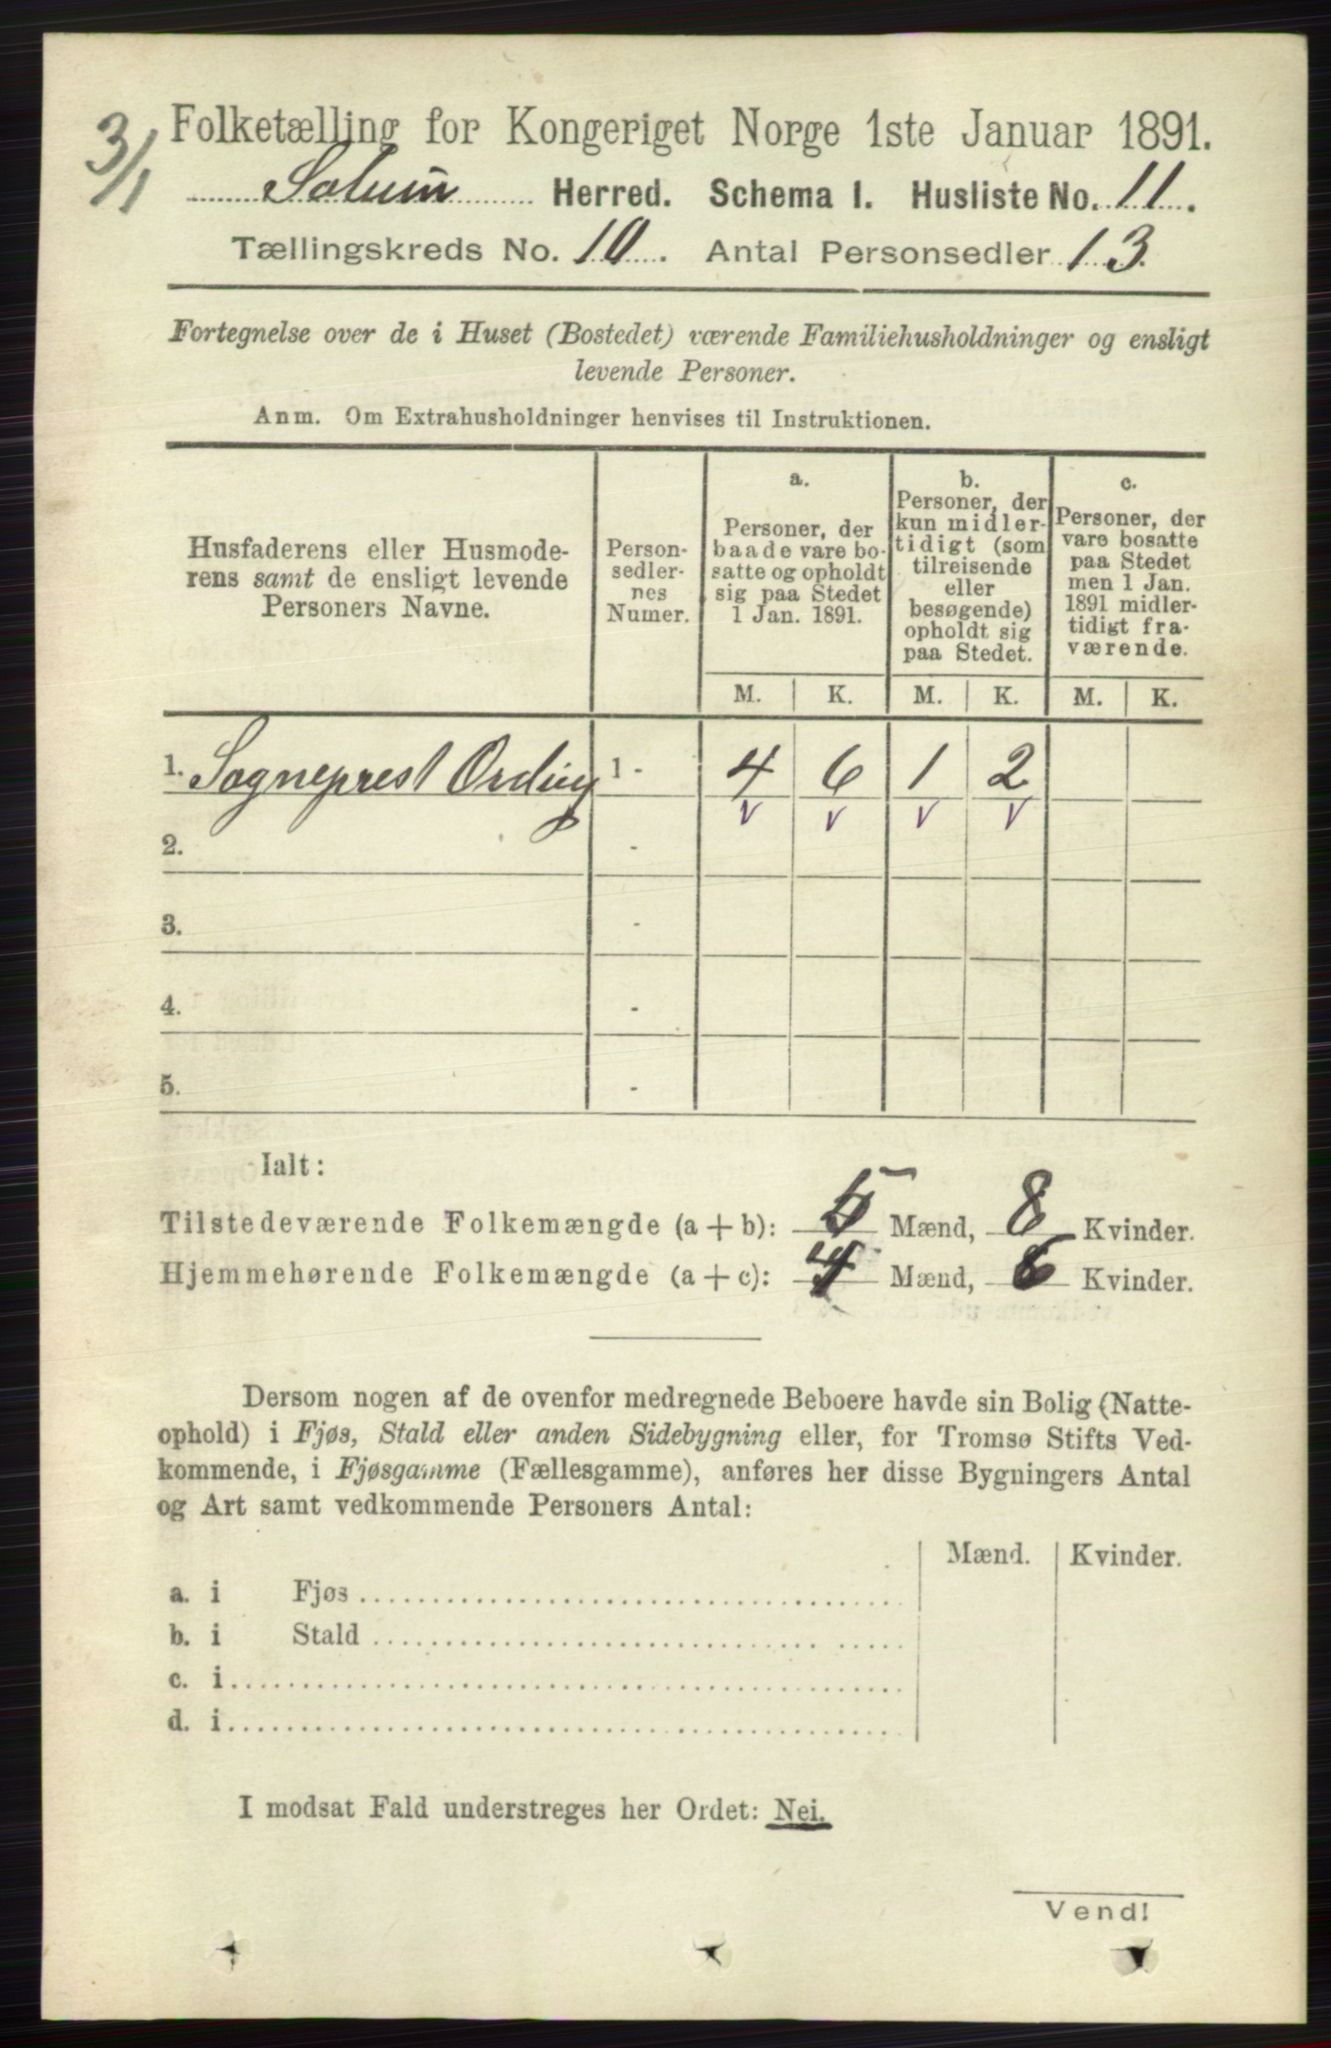 3/1
Folketælling for Kongeriget Norge 1ste Januar 1891.
Solum Herred. Schema I. Husliste No. 11.
Tællingskreds No. 10. Antal Personsedler 13.
Fortegnelse over de i Huset (Bostedet) værende Familiehusholdninger og ensligt
levende Personer.
Anm. Om Extrahusholdninger henvises til Instruktionen.
Husfaderens eller Husmode-
rens samt de ensligt levende
Personers Navne.
Person-
sedler-
nes
Numer.
a.
Personer, der
baade vare bo-
satte og opholdt
sig paa Stedet
1 Jan. 1891.
b.
Personer, der
kun midler-
tidigt (som
tilreisende
eller
besøgende)
opholdt sig
paa Stedet.
c.
Personer, der
vare bosatte
paa Stedet
men 1 Jan.
1891 midler-
tidigt fra-
værende.
M. K. M. K. M. K.
1. Sogneprest Ording 1 - 4 6 1 2
v v v v
2. -
3. -
4. -
5. -
Ialt:
Tilstedeværende Folkemængde (a + b): 5 Mænd, 8 Kvinder.
Hjemmehørende Folkemængde (a + c): 4 Mænd, 6 Kvinder.
Dersom nogen af de ovenfor medregnede Beboere havde sin Bolig (Natte-
ophold) i Fjøs, Stald eller anden Sidebygning eller, for Tromsø Stifts Ved-
kommende, i Fjøsgamme (Fællesgamme), anføres her disse Bygningers Antal
og Art samt vedkommende Personers Antal:
Mænd. Kvinder.
a. i Fjøs
b. i Stald
c. i
d. i
I modsat Fald understreges her Ordet: Nei.
Vend!